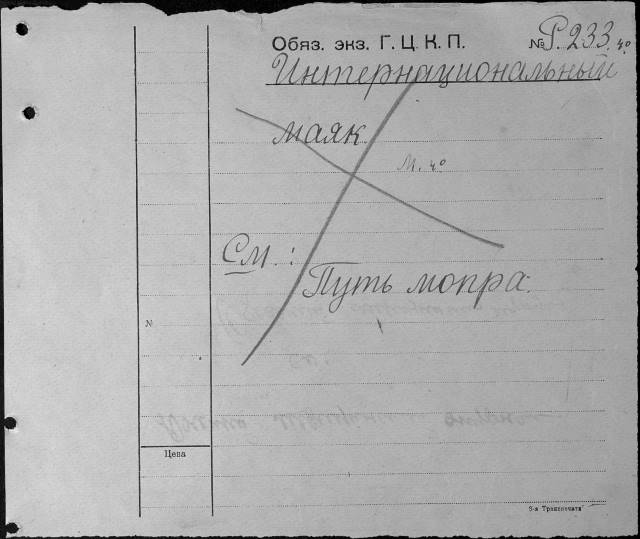 Обяз. экз. Г. Ц. К. П. № Р. 233. 4°
Интернациональный
маяк
М. 4°
См. :
Путь мопра.
N
Цена
3-я Транспечать